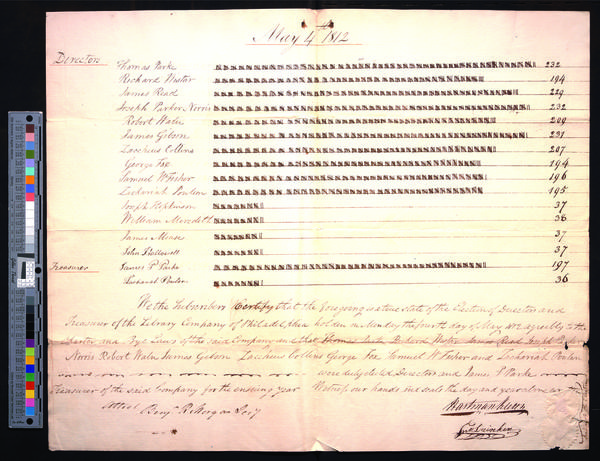 May 4th 1812
Directors
Thomas Parke 232
Richard Wistar 194
James Read 229
Joseph Parker Norris 232
Robert Waln 209
James Gibson 231
Zaccheus Collins 207
George Fox 194
Samuel W Fisher 196
Zachariah Poulson 195
Joseph 37
William Meredith 36
James Mease 37
John Hallowell 37
Treasurer James P Parke 197
Zachariah Poulson 36
We the Subscribers Certify that the foregoing is a true state of the Election of Directors and
Treasurer of the Library Company of Philadelphia holden on Monday the fourth day of May 1812 agreeably to the
Charter and Bye Laws of the said Company and that Thomas Parke Richard Wistar James Read Joseph P
Norris Robert Waln James Gibson Zaccheus Collins George Fox Samuel W Fisher and Zachariah Poulson
were duly elected Directors and James P Parke
Treasurer of the said Company for the ensuing year Witness our hands and seals the day and year above
Attest
Benjn R Morgan Secy
Hartman Kuhn